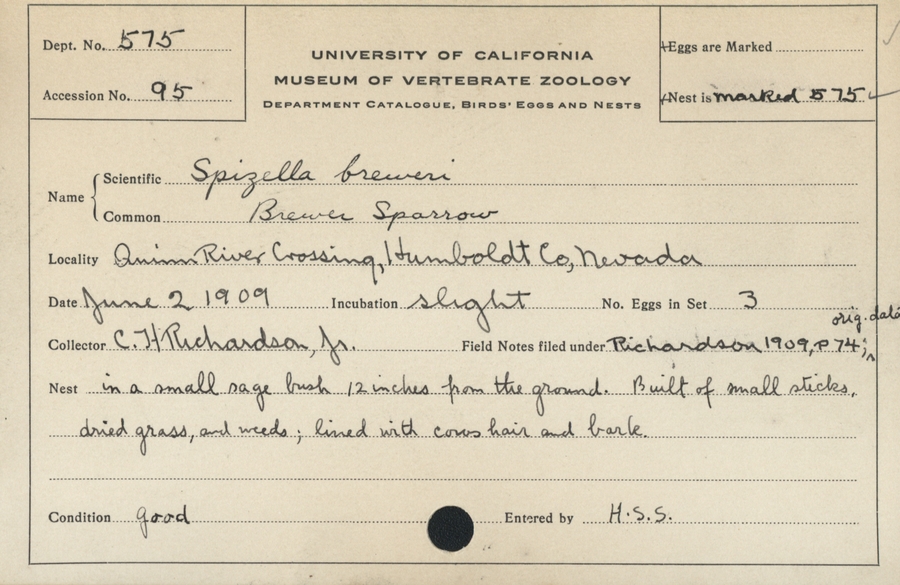 Dept. No. 575
Accession No. 95
UNIVERSITY OF CALIFORNIA
MUSEUM OF VERTEBRATE ZOOLOGY
DEPARTMENT CATALOGUE, BIRDS' EGGS AND NESTS
Eggs are Marked
Nest is marked 575
Name { Scientific Spizella breweri
Common Brewer Sparrow
Locality Quinn River Crossing, Humboldt Co, Nevada
Date June 2 1909 Incubation slight No. Eggs in Set 3
orig. data
Collector C. H Richardson, Jr. Field Notes filed under Richardson 1909, p 74;
Nest in a small sage bush 12 inches from the ground. Built of small sticks,
dried grass, and weeds; lined with cows hair and bark.
Condition good Entered by H.S.S.